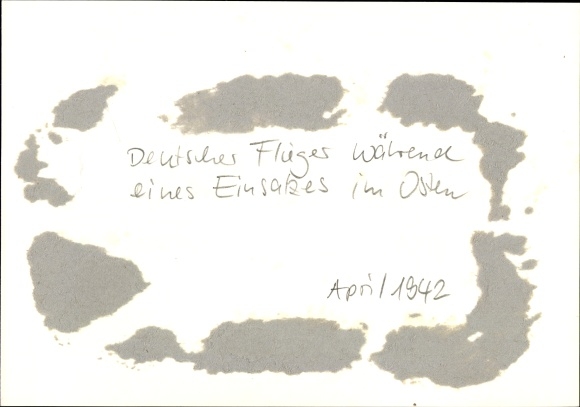 Deutscher Flieger während
eines Einsatzes im Osten
April 1942